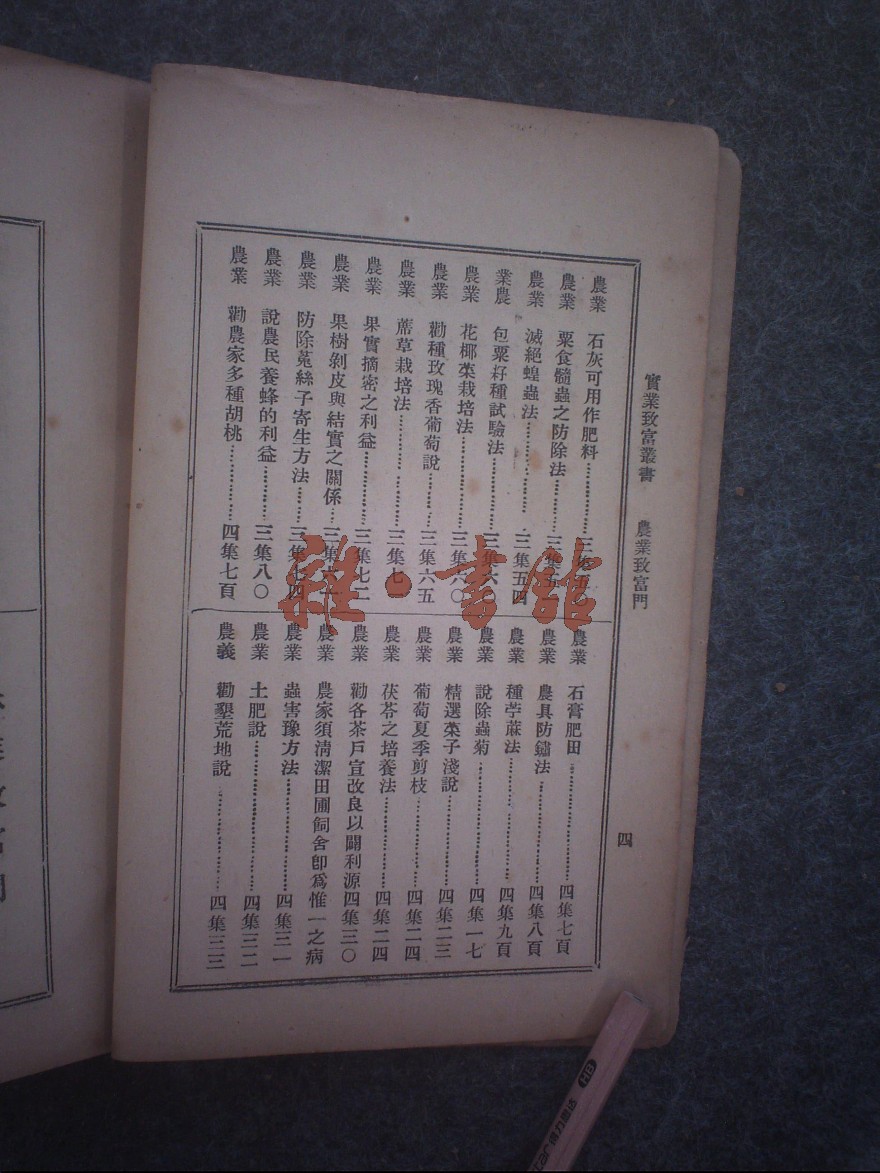 實業致富叢書 農業致富門 四
農業 石灰可用作肥料 三集五〇
農業 粟食髓蟲之防除法 三集五
農業 滅絕蝗蟲法 三集五四
業農 包粟籽種試驗法 三集六〇
農業 花椰菜栽培法 三集六〇
農業 勸種玫瑰香葡萄說 三集六五
農業 蓆草栽培法 三集七一
農業 果實摘密之利益 三集七二
農業 果樹剝皮與結實之關係 三集
農業 防除菟絲子寄生方法 三集七四
農業 說農民養蜂的利益 三集八〇
農業 勸農家多種胡桃 四集七頁
農業 石膏肥田 四集七頁
農業 農具防鏽法 四集八頁
農業 種苧蔴法 四集九頁
農業 說除蟲菊 四集一七
農業 精選菜子淺說 四集二三
農業 葡萄夏季剪枝 四集二四
農業 茯苓之培養法 四集二四
農業 勸各茶戶宣改良以闢利源 四集三〇
農業 農家須清潔田圃飼舍卽爲惟一之病
農業 蟲害豫方法 四集三一
農業 土肥說 四集三二
農義 勸墾荒地說 四集三三
雜·書館
HB